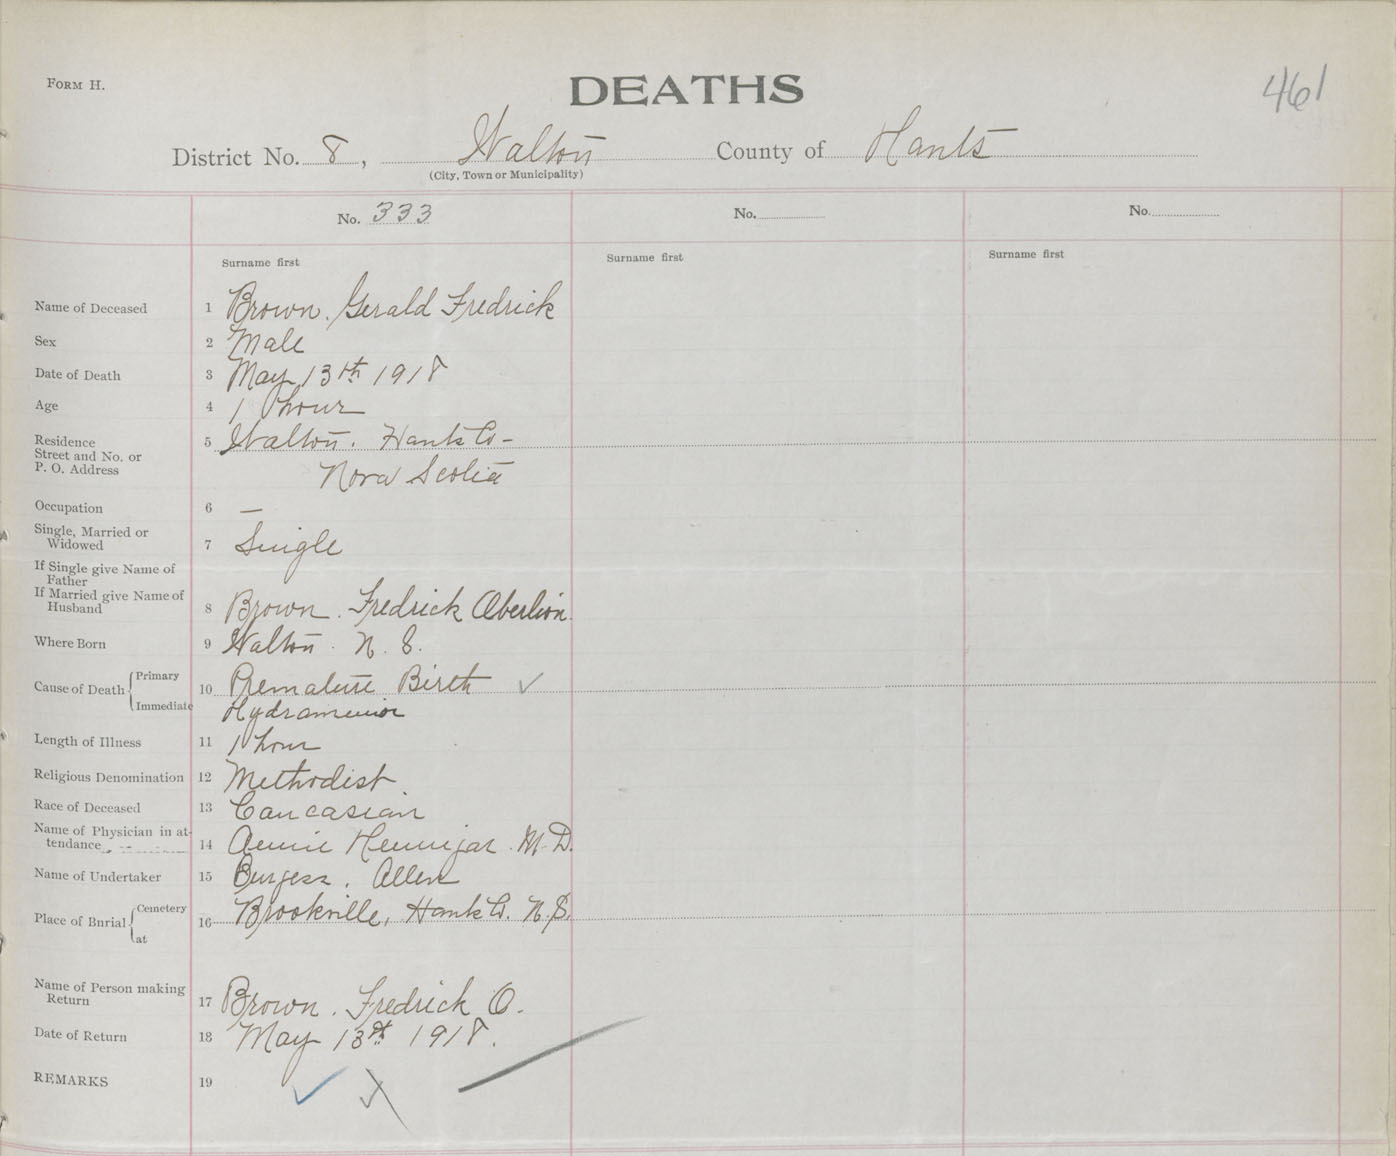 FORM H.
DEATHS
461
District No. 8, Walton County of Hants
(City, Town or Municipality)
No. 333
No.
No.
Surname first
Surname first
Surname first
Name of Deceased 1 Brown. Gerald Fredrick
Sex 2 Male
Date of Death 3 May 13th 1918
Age 4 1 hour
Residence
Street and No. or
P. O. Address
5 Walton. Hants Co-
Nova Scotia
Occupation 6 —
Single, Married or
Widowed
7 Single
If Single give Name of
Father
If Married give Name of
Husband
8 Brown. Fredrick
Where Born 9 Walton. N. S.
Cause of Death { Primary
Immediate
10 Premature Birth ✓
Length of Illness 11 1 hour
Religious Denomination 12 Methodist.
Race of Deceased 13 Caucasian
Name of Physician in at-
tendance
14 Annie Hennigar. M.D.
Name of Undertaker 15 Burgess. Allen
Place of Burial { Cemetery
at
16 Brookville, Hants Co. N.S.
Name of Person making
Return
17 Brown. Fredrick O.
Date of Return 18 May 13th 1918.
REMARKS 19